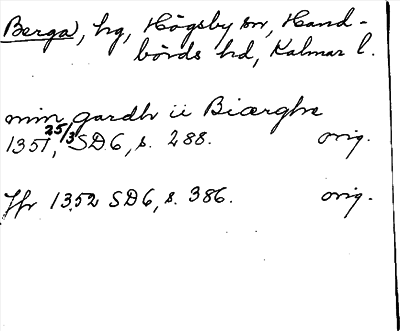 Berga, hg, Högsby sn, Hand-
börds hd, Kalmar l.
min gardh ii Biærghe
1351, 25/3 SD6, s. 288. orig.
Jfr 1352 SD6, s. 386. orig.